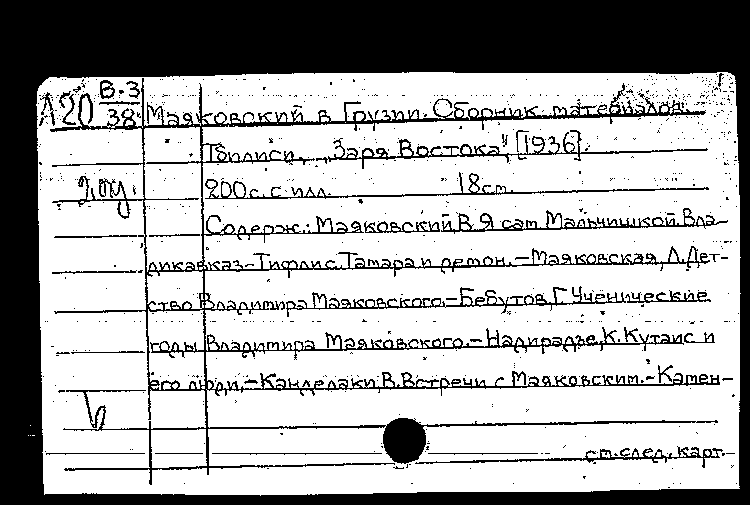 А20 В·3/38 Маяковский в Грузии. Сборник материалов.
Тбилиси, „Заря Востока", [1936].
200с. с илл. 18см.
Содерж.: Маяковский, В. Я сам. Мальчишкой. Вла-
дикавказ-Тифлис. Тамара и демон. – Маяковская, Л. Дет-
ство Владимира Маяковского. – Бебутов, Г. Ученические
годы Владимира Маяковского. – Надирадзе, К. Кутаис и
его люди, – Канделаки, В. Встречи с Маяковским. – Камен-
см. след. карт.